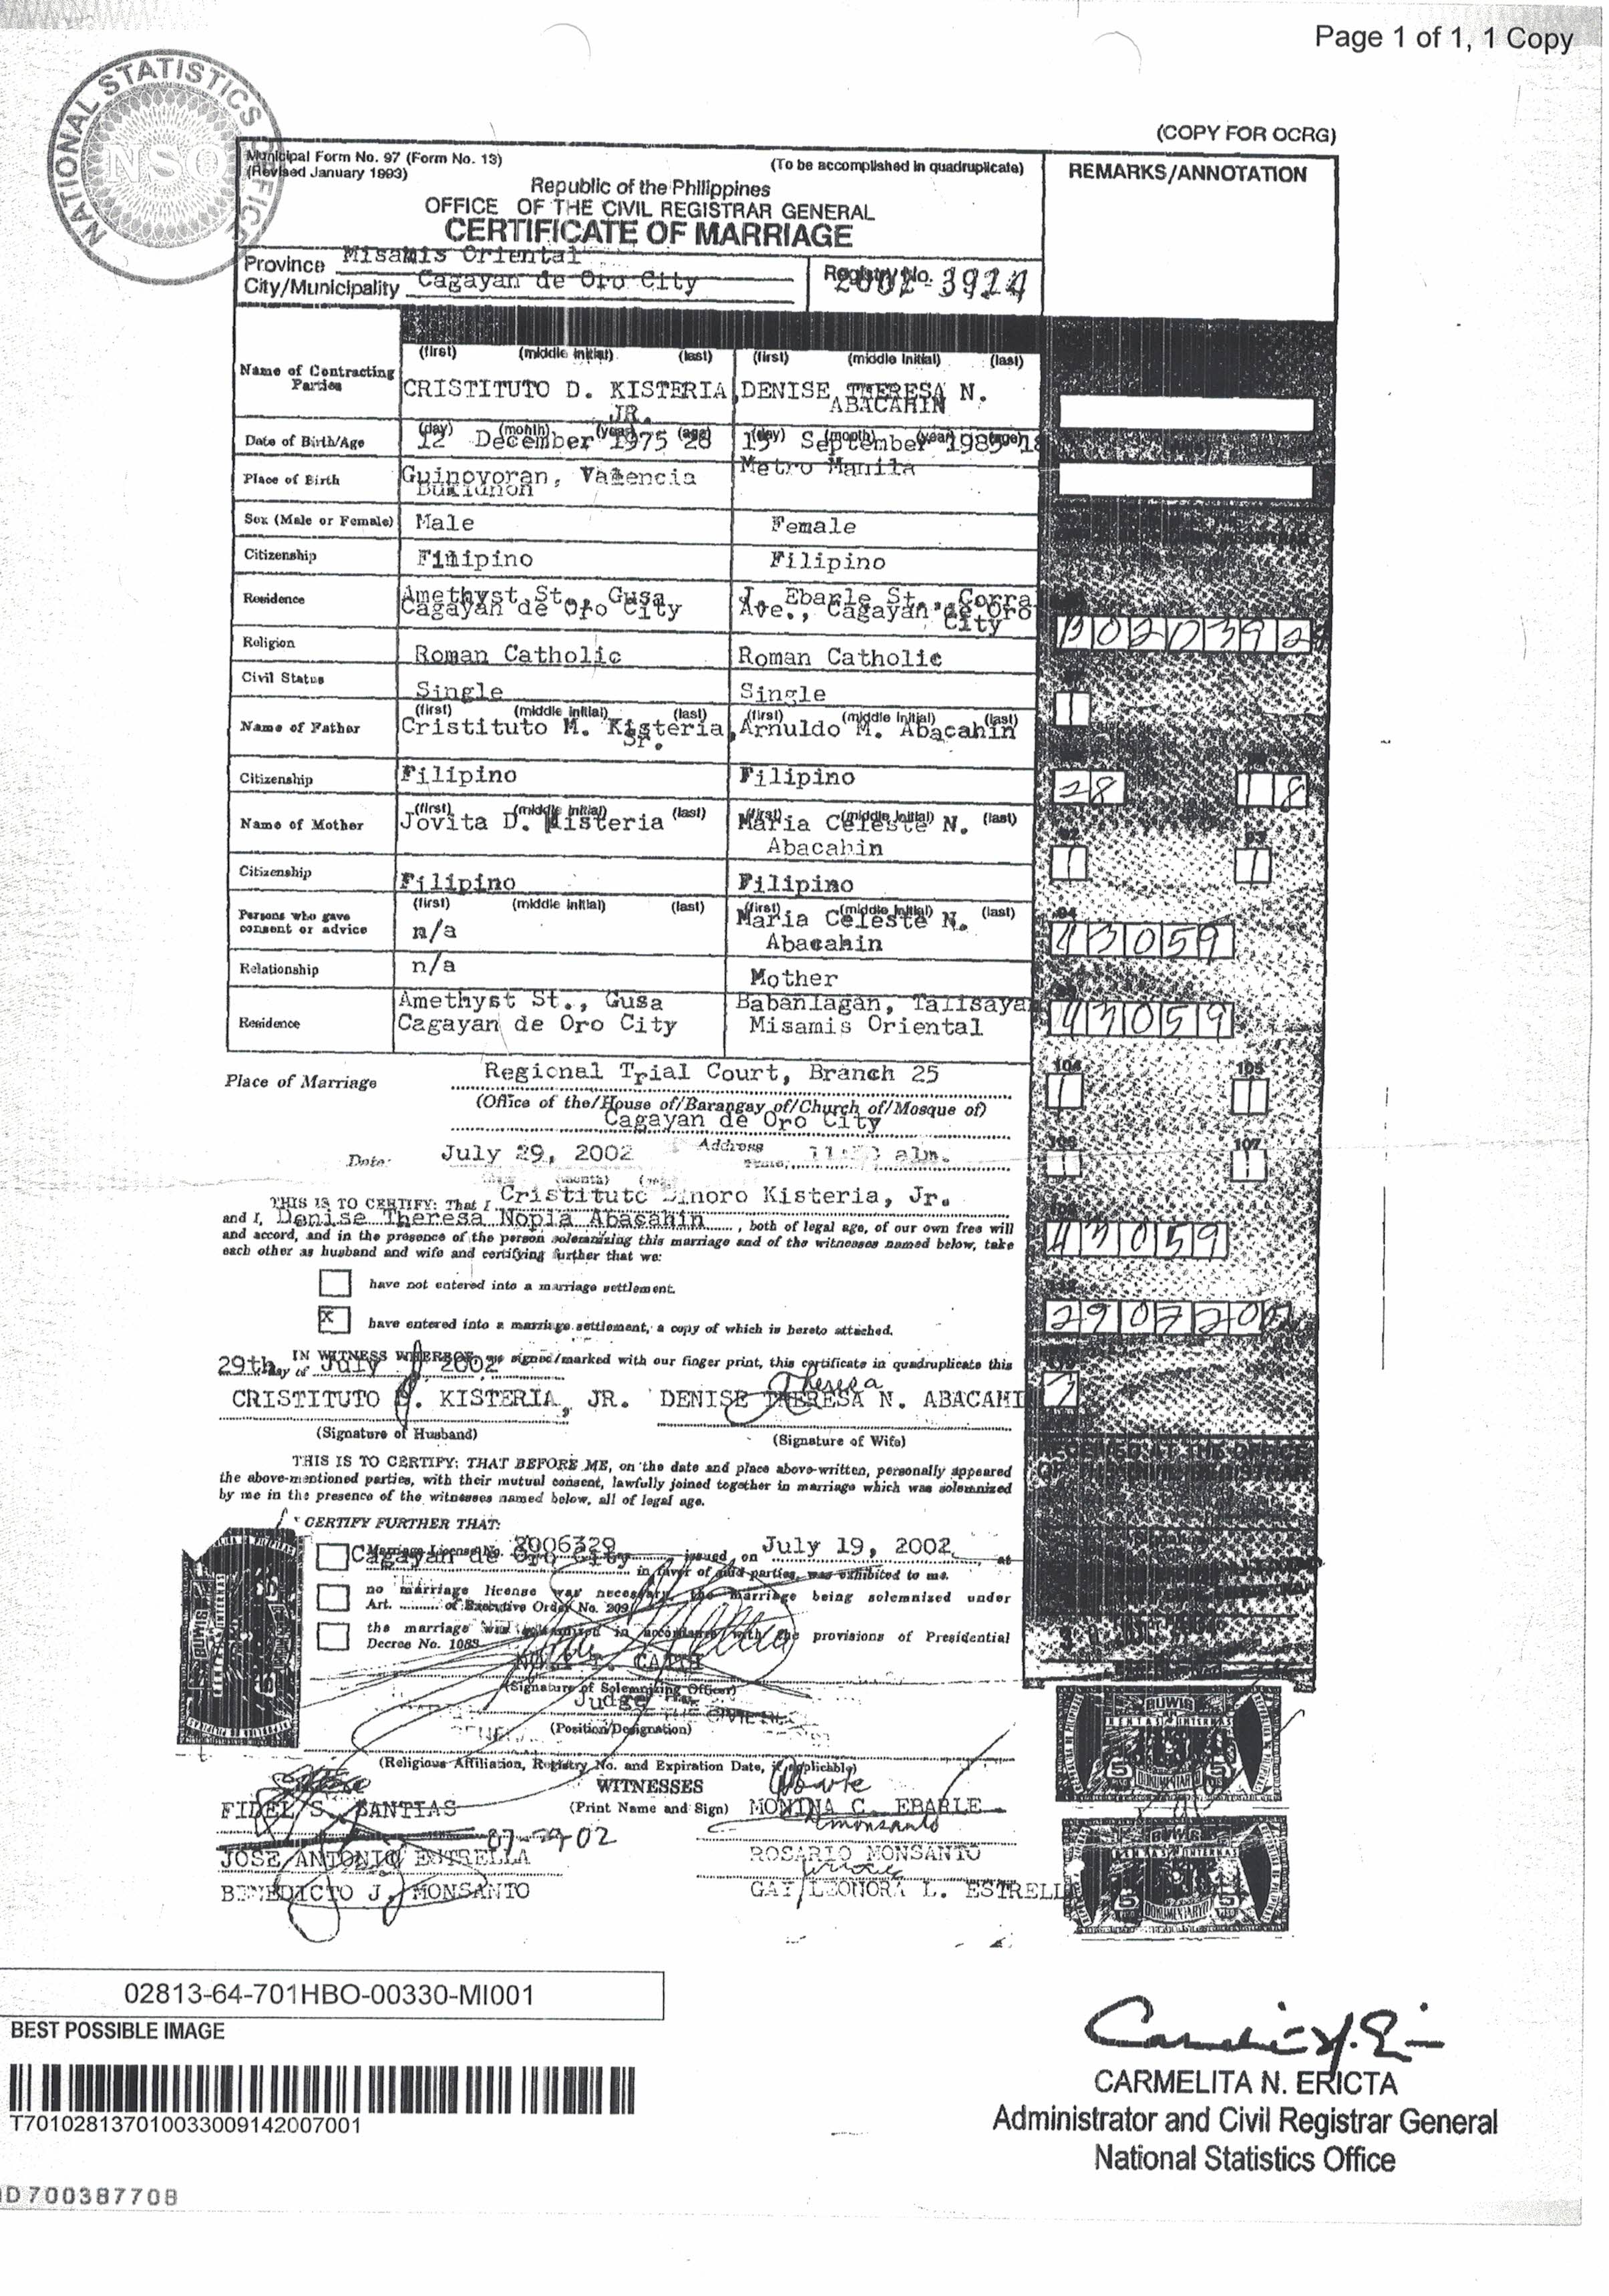 Page 1 of 1, 1 Copy
NATIONAL STATISTICS OFFICE
NSO
(COPY FOR OCRG)
Municipal Form No. 97 (Form No. 13)
(Revised January 1993)
(To be accomplished in quadruplicate)
REMARKS/ANNOTATION
Republic of the Philippines
OFFICE OF THE CIVIL REGISTRAR GENERAL
CERTIFICATE OF MARRIAGE
Province Misamis Oriental
City/Municipality Cagayan de Oro City
Registry No.
(first) (middle initial) (last) (first) (middle initial) (last)
Name of Contracting Parties
CRISTITUTO D. KISTERIA, JR.
DENISE THERESA N. ABACAHIN
(day) (month) (year) (age) (day) (month) (year) (age)
Date of Birth/Age 12 December 1975 28 September 1983 18
Place of Birth Guinoyoran, Valencia Bukidnon Metro Manila
Sex (Male or Female) Male Female
Citizenship Filipino Filipino
Residence Amethyst St., Gusa Cagayan de Oro City
J. Ebarle St., Corra Ave., Cagayan de Oro City
Religion Roman Catholic Roman Catholic
Civil Status Single Single
(first) (middle initial) (last) (first) (middle initial) (last)
Name of Father Cristituto M. Kisteria, Sr. Arnuldo M. Abacahin
Citizenship Filipino Filipino
28 18
(first) (middle initial) (last) (first) (middle initial) (last)
Name of Mother Jovita D. Kisteria Maria Celeste N. Abacahin
Citizenship Filipino Filipino
(first) (middle initial) (last) (first) (middle initial) (last)
Persons who gave consent or advice n/a Maria Celeste N. Abacahin
43059
Relationship n/a Mother
Residence Amethyst St., Gusa Cagayan de Oro City
Misamis Oriental
43059
Place of Marriage Regional Trial Court, Branch 25
(Office of the/House of/Barangay of/Church of/Mosque of)
Cagayan de Oro City
Address
Date: July 29, 2002
107
THIS IS TO CERTIFY: That I Cristituto Dinoro Kisteria, Jr.
and I, Denise Theresa Nopla Abacahin, both of legal age, of our own free will
and accord, and in the presence of the person solemnizing this marriage and of the witnesses named below, take
each other as husband and wife and certifying further that we:
43059
have not entered into a marriage settlement.
x have entered into a marriage settlement, a copy of which is hereto attached.
IN WITNESS WHEREOF, we signed/marked with our finger print, this certificate in quadruplicate this
29th day of July 2002
CRISTITUTO D. KISTERIA, JR. DENISE THERESA N. ABACAHI
Theresa
(Signature of Husband) (Signature of Wife)
THIS IS TO CERTIFY: THAT BEFORE ME, on the date and place above-written, personally appeared
the above-mentioned parties, with their mutual consent, lawfully joined together in marriage which was solemnized
by me in the presence of the witnesses named below, all of legal age.
CERTIFY FURTHER THAT:
Marriage License No. 8006329 issued on July 19, 2002 at
Cagayan de Oro City in favor of said parties, was exhibited to me.
no marriage license was necessary, the marriage being solemnized under
Art. ......... of Executive Order No. 209
the marriage was solemnized in accordance with the provisions of Presidential
Decree No. 1083
(Signature of Solemnizing Officer)
Judge
(Position/Designation)
(Religious Affiliation, Registry No. and Expiration Date, if applicable)
WITNESSES
(Print Name and Sign)
FIDEL S. SANTIAS MONINA C. EBARLE
07-29-02
JOSE ANTONIO ESTRELLA ROSARIO MONSANTO
BENEDICTO J. MONSANTO GAY LEONORA L. ESTRELL
BUWIS
RENTAS INTERNAS
5 DOKUMENTARYO 5
02813-64-701HBO-00330-MI001
BEST POSSIBLE IMAGE
T701028137010033009142007001
CARMELITA N. ERICTA
Administrator and Civil Registrar General
National Statistics Office
D700387708